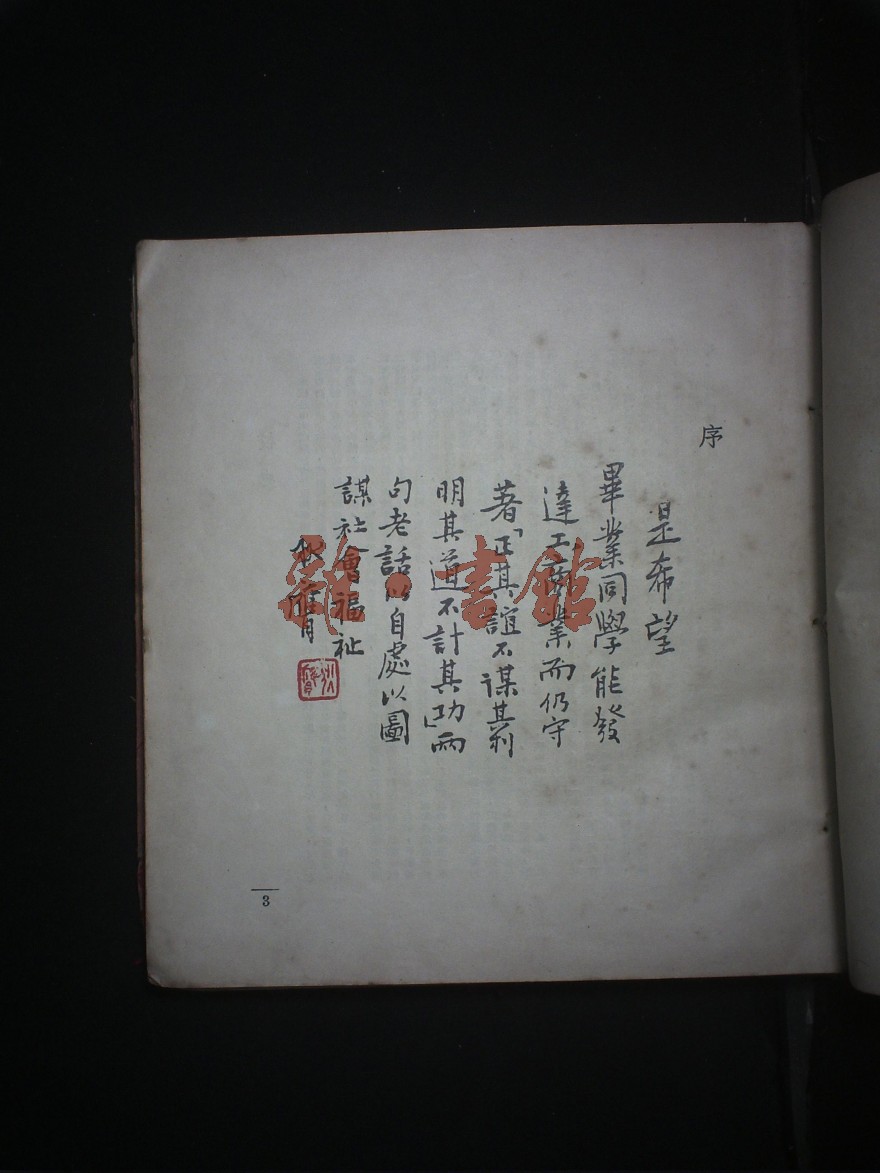 序
是希望
畢業同學能發
達工商業而仍守
著「正其誼不謀其利
明其道不計其功」兩
句老話以自處以圖
謀社會福祉
雜·書館
3